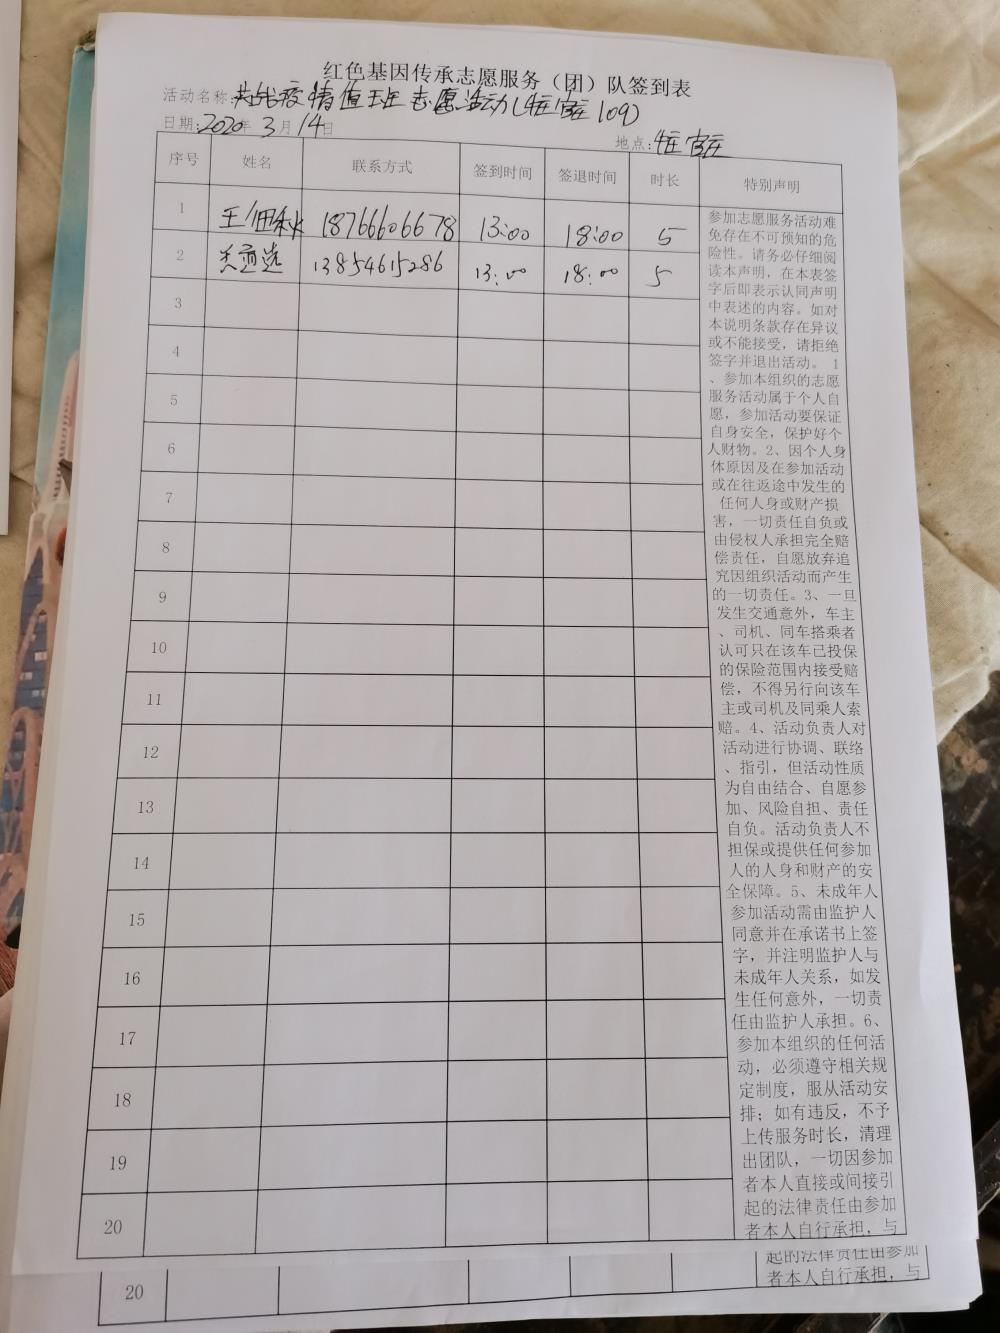 红色基因传承志愿服务（团）队签到表
活动名称:共战疫情值班志愿活动(牡宦庄109)
日期:2020年3月14日
地点:宦庄
序号 姓名 联系方式 签到时间 签退时间 时长 特别声明
1 王佃秋 18766606678 13:00 18:00 5
2 13854615286 13:00 18:00 5
3
4
5
6
7
8
9
10
11
12
13
14
15
16
17
18
19
20
参加志愿服务活动难
免存在不可预知的危
险性。请务必仔细阅
读本声明，在本表签
字后即表示认同声明
中表述的内容。如对
本说明条款存在异议
或不能接受，请拒绝
签字并退出活动。 1
、参加本组织的志愿
服务活动属于个人自
愿，参加活动要保证
自身安全，保护好个
人财物。2、因个人身
体原因及在参加活动
或在往返途中发生的
任何人身或财产损
害，一切责任自负或
由侵权人承担完全赔
偿责任，自愿放弃追
究因组织活动而产生
的一切责任。3、一旦
发生交通意外，车主
、司机、同车搭乘者
认可只在该车已投保
的保险范围内接受赔
偿，不得另行向该车
主或司机及同乘人索
赔。4、活动负责人对
活动进行协调、联络
、指引，但活动性质
为自由结合、自愿参
加、风险自担、责任
自负。活动负责人不
担保或提供任何参加
人的人身和财产的安
全保障。5、未成年人
参加活动需由监护人
同意并在承诺书上签
字，并注明监护人与
未成年人关系，如发
生任何意外，一切责
任由监护人承担。6、
参加本组织的任何活
动，必须遵守相关规
定制度，服从活动安
排；如有违反，不予
上传服务时长，清理
出团队，一切因参加
者本人直接或间接引
起的法律责任由参加
者本人自行承担，与
起的法律责任由参加
者本人自行承担，与
20